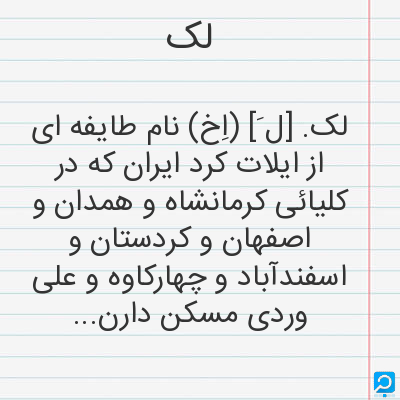 لک
لک. [ل َ] (اِخ) نام طایفه ای
از ایلات کرد ایران که در
کلیائی کرمانشاه و همدان و
اصفهان و کردستان و
اسفندآباد و چهارکاوه و علی
وردی مسکن دارن...